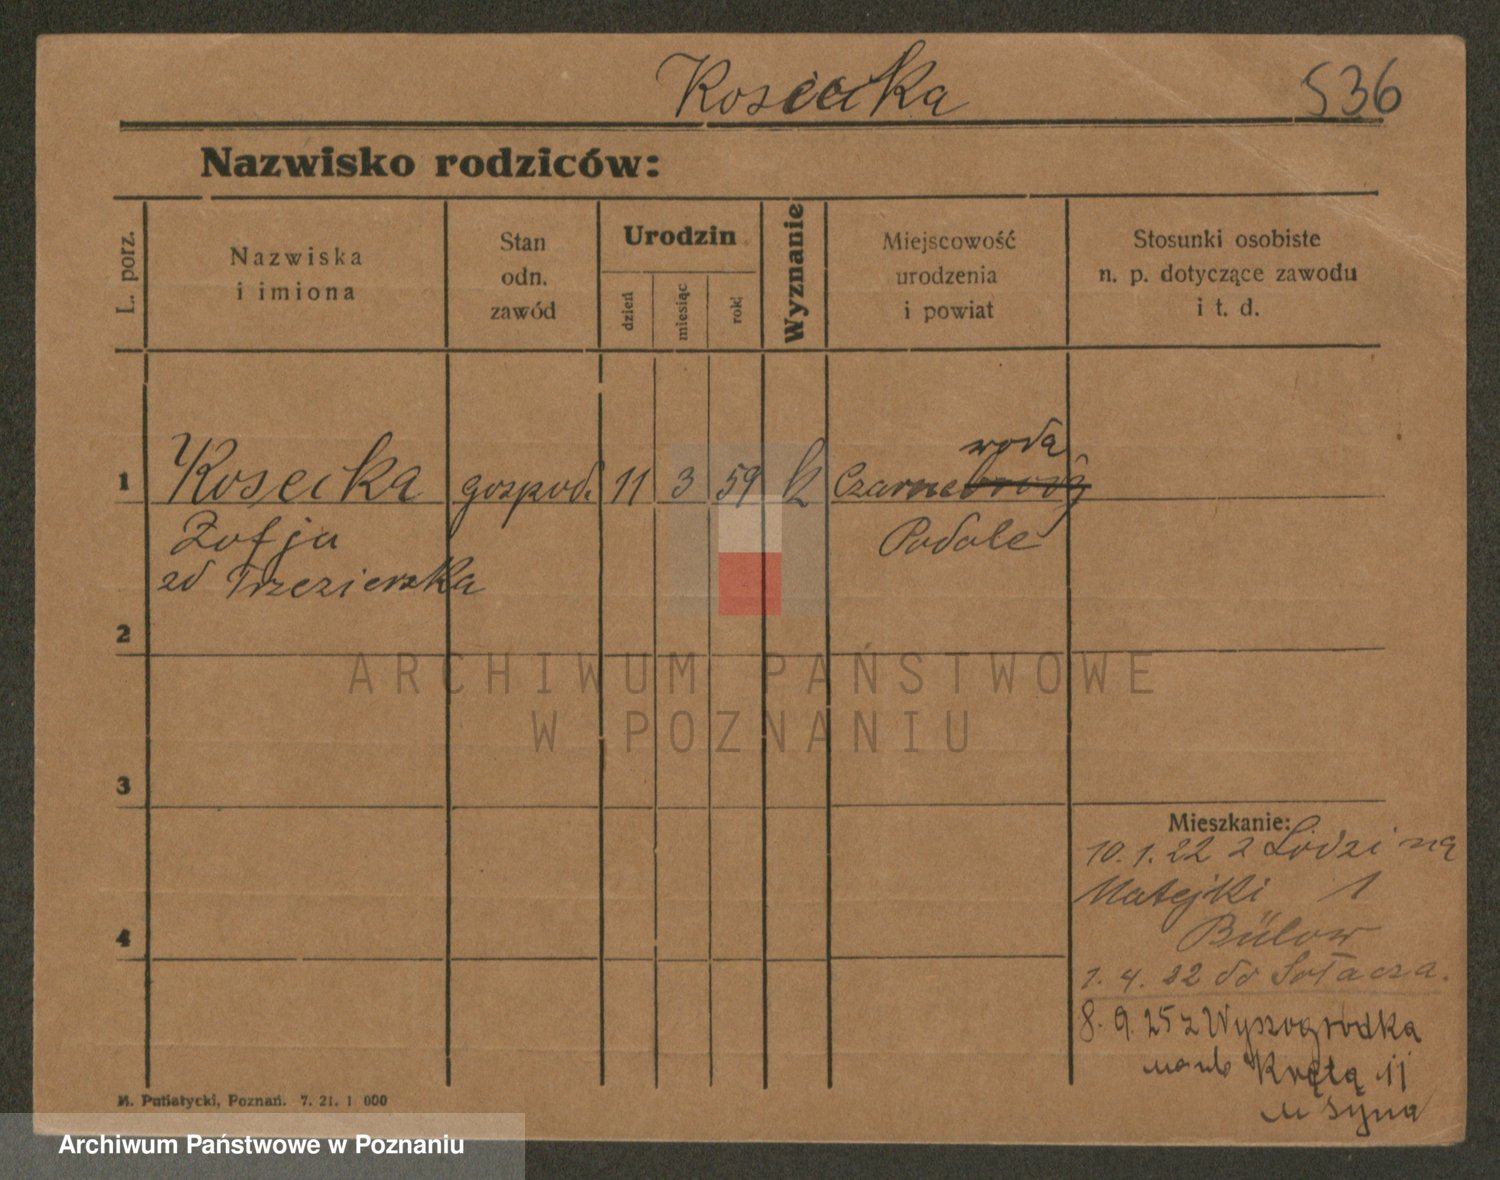 Kosecka 536
Nazwisko rodziców:
L. porz.
Nazwiska
i imiona
Stan
odn.
zawód
Urodzin
dzień
miesiąc
rok
Wyznanie
Miejscowość
urodzenia
i powiat
Stosunki osobiste
n. p. dotyczące zawodu
i t. d.
woda
1 Kosecka gospod. 11 3 59 k Czarne
Zofja Podole
zd
2
ARCHIWUM PAŃSTWOWE
W POZNANIU
3
Mieszkanie:
10.1.22 z Łodzi na
Matejki 1
4
Bülow
1.4.22 do Sołacza.
8.9.25 z Wyszogrodka
Krętą 11
u syna
M. Putiatycki, Poznań. 7. 21. 1 000
Archiwum Państwowe w Poznaniu